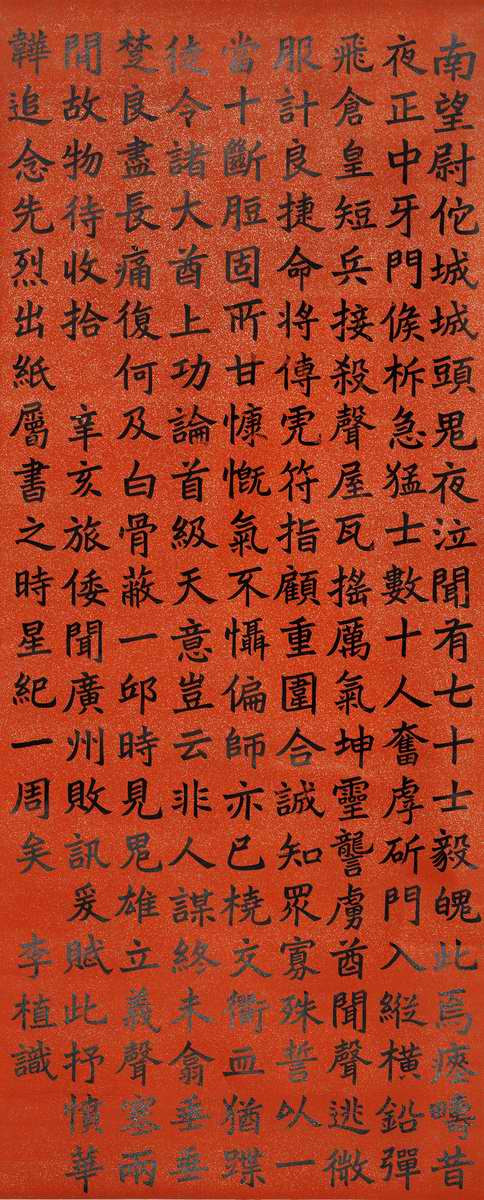 南望尉佗城城頭鬼夜泣聞有七十士毅魄此焉瘞疇昔
夜正中牙門候柝急猛士數十人奮虖斫門入縱橫鉛彈
飛倉皇短兵接殺聲屋瓦搖厲氣坤靈讋虜酋聞聲逃微
服計良捷命將傳虎符指顧重圍合誠知眾寡殊誓以一
當十斷脰固所甘慷慨氣不懾偏師亦已橈交衢血猶蹀
徒令諸大酋上功論首級天意豈云非人謀終未翕垂垂
楚良盡長痛復何及白骨蔽一邱時見鬼雄立義聲塞兩
閒故物待收拾 辛亥旅倭聞廣州敗訊爰賦此抒憤華
韡追念先烈出紙屬書之時星紀一周矣 李植識